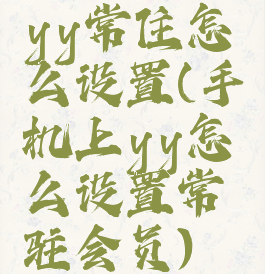 yy常住怎
么设置(手
机上yy怎
么设置常
驻会员)